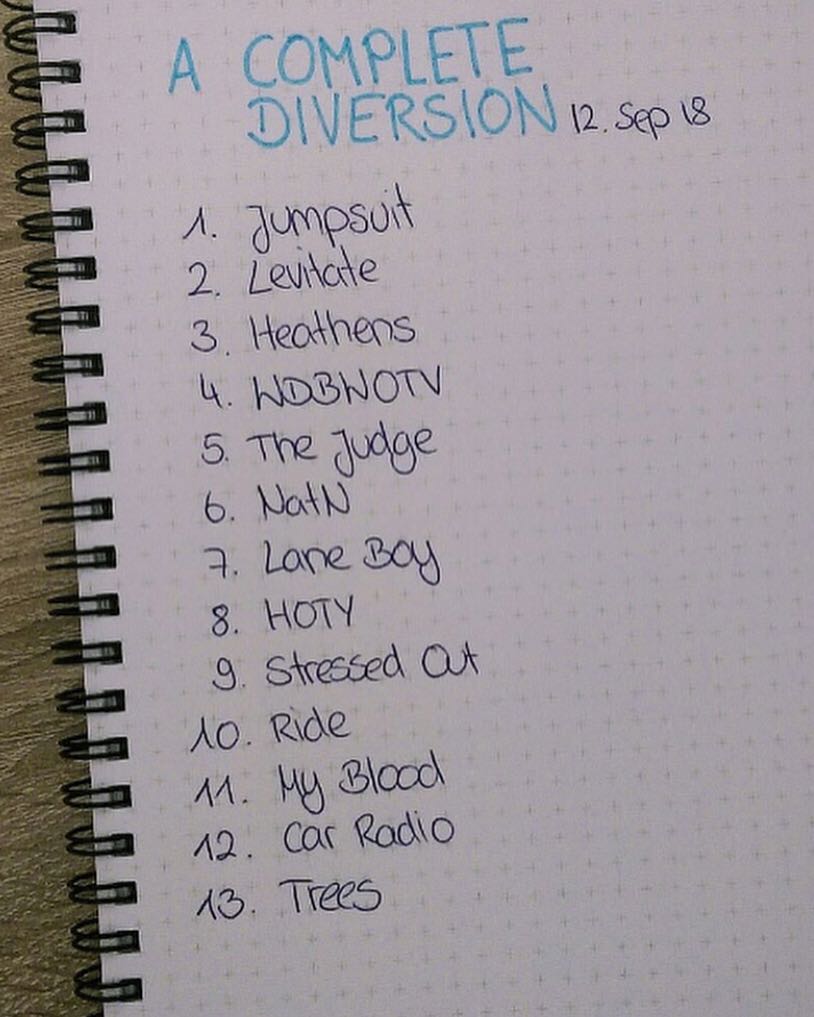 A COMPLETE
DIVERSION 12. Sep 18
1. Jumpsuit
2. Levitate
3. Heathens
4. WDBWOTV
5. The Judge
6. NatN
7. Lane Boy
8. HOTY
9. Stressed Out
10. Ride
11. My Blood
12. Car Radio
13. Trees